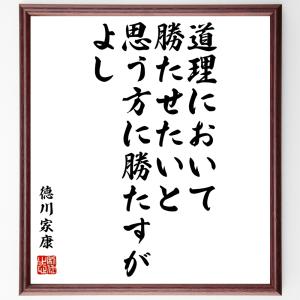 道理において
勝たせたいと
思う方に勝たすが
よし
徳川家康